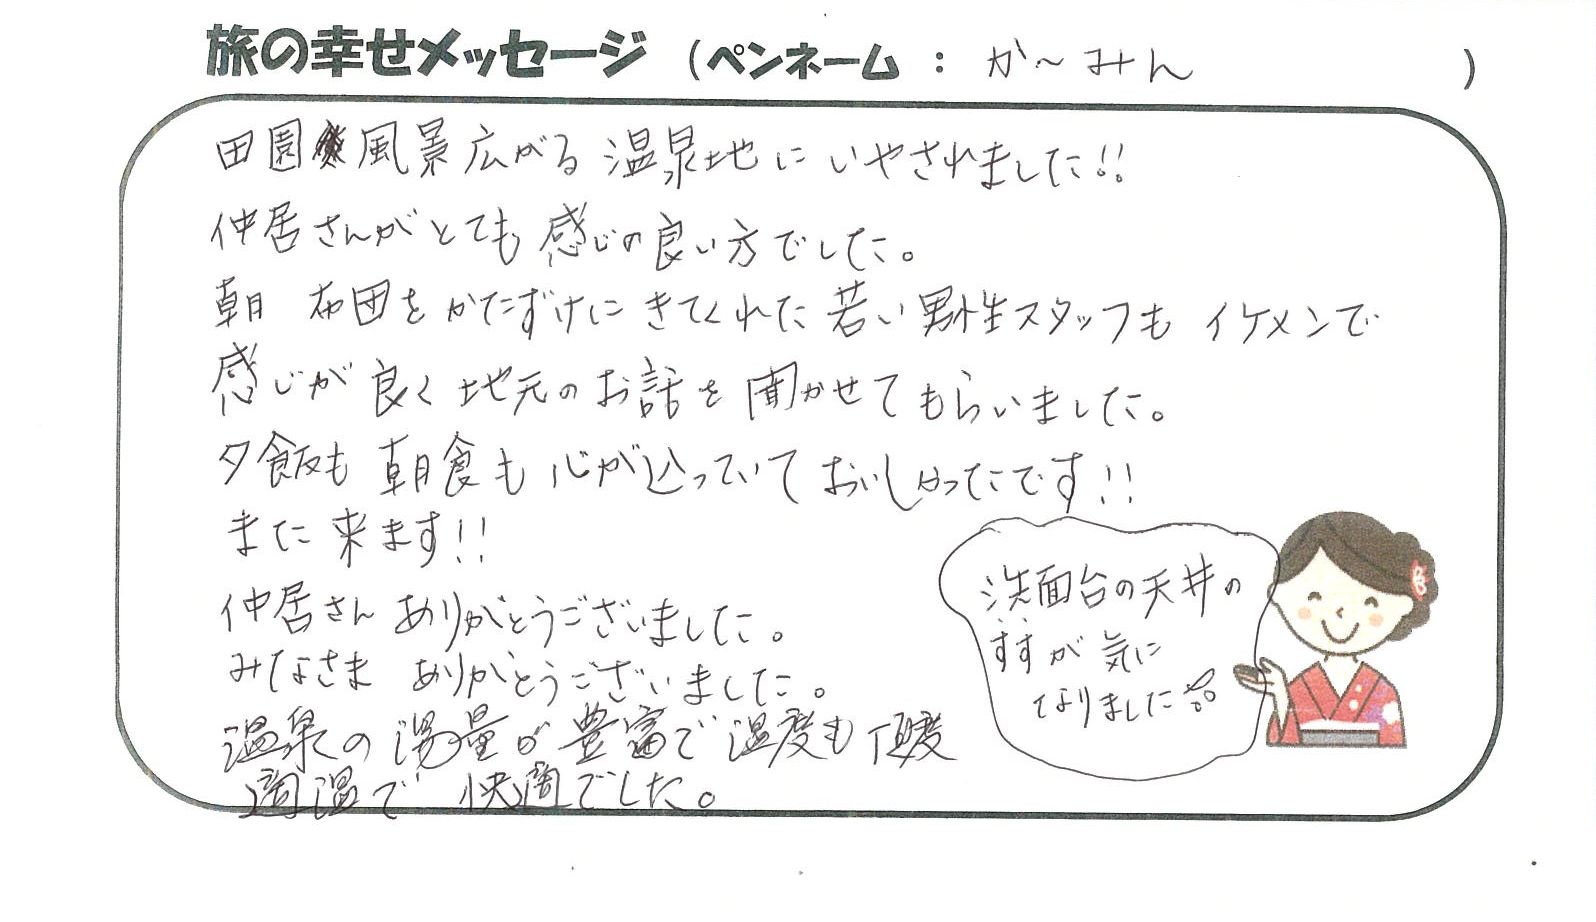 旅の幸せメッセージ (ペンネーム : か～みん )
田園風景広がる温泉地にいやされました!!
仲居さんがとても感じの良い方でした。
朝 布団をかたずけにきてくれた若い男性スタッフもイケメンで
感じが良く地元のお話を聞かせてもらいました。
夕飯も朝食も心が込っていておいしかったです!!
また来ます!!
仲居さんありがとうございました。
みなさま ありがとうございました。
温泉の湯量が豊富で温度も
適温で 快適でした。
洗面台の天井の
すすが気に
なりました